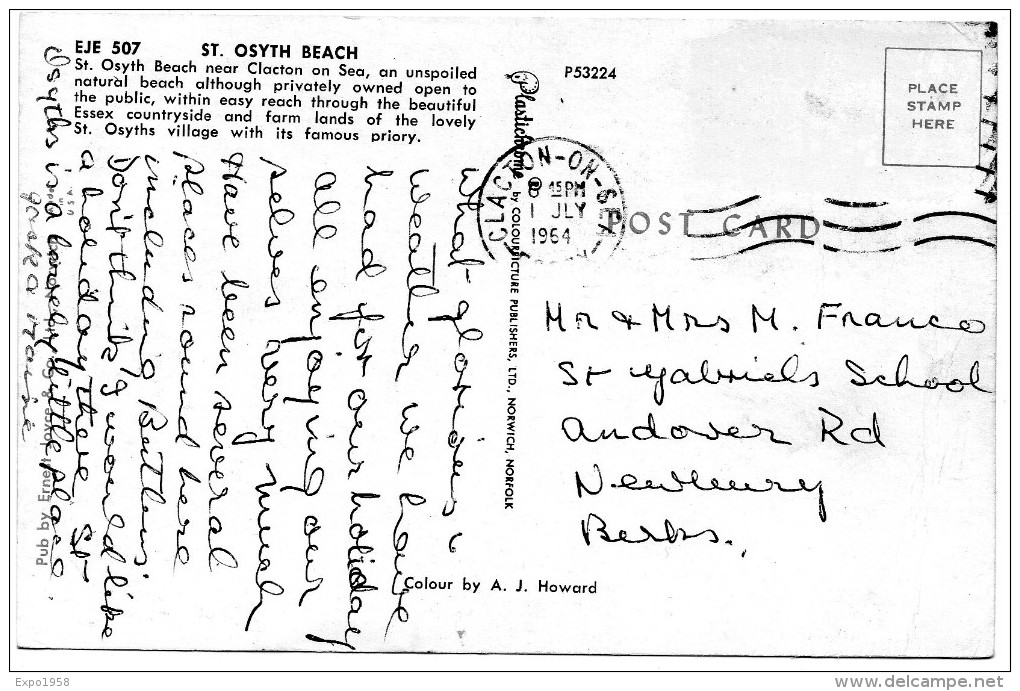 EJE 507 ST. OSYTH BEACH
St. Osyth Beach near Clacton on Sea, an unspoiled
natural beach although privately owned open to
the public, within easy reach through the beautiful
Essex countryside and farm lands of the lovely
St. Osyths village with its famous priory.
What glorious
weather we have
had for our holiday
all enjoying our
selves very much
Have been several
places round here
including Butlins'
Don't think I would like
a holiday there. St
Osyths is a lovely little place
Pub by Ernest
Plastichrome ® by COLOURPICTURE PUBLISHERS, LTD., NORWICH, NORFOLK
P53224
PLACE
STAMP
HERE
CLACTON-ON-SEA
45PM
1 JLY
1964
POST CARD
Mr & Mrs M. Franco
St Gabriels School
Andover Rd
Newbury
Berks.
Colour by A. J. Howard
Expo1958
www.delcampe.net